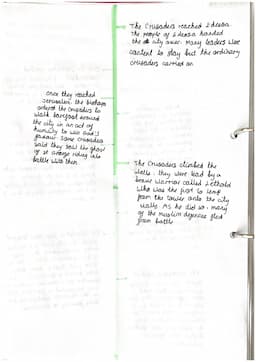 The Crusaders reached Edessa
the people of Edessa handed
the city over. Many leaders were
content to stay but the ordinary
crusaders carried on
once they reached
Jerusalem, the bishops
ordered the crusaders to
walk barefoot around
the city in an act of
humility to win God's
favour. Some crusaders
said they saw the ghost
of st riding into
battle with them.
The Crusaders climbed the
walls. they were lead by a
brave warrior called Lethold
who was the first to leap
from the tower onto the city
walls. As he did so, many
of the Muslim defences fled
from battle